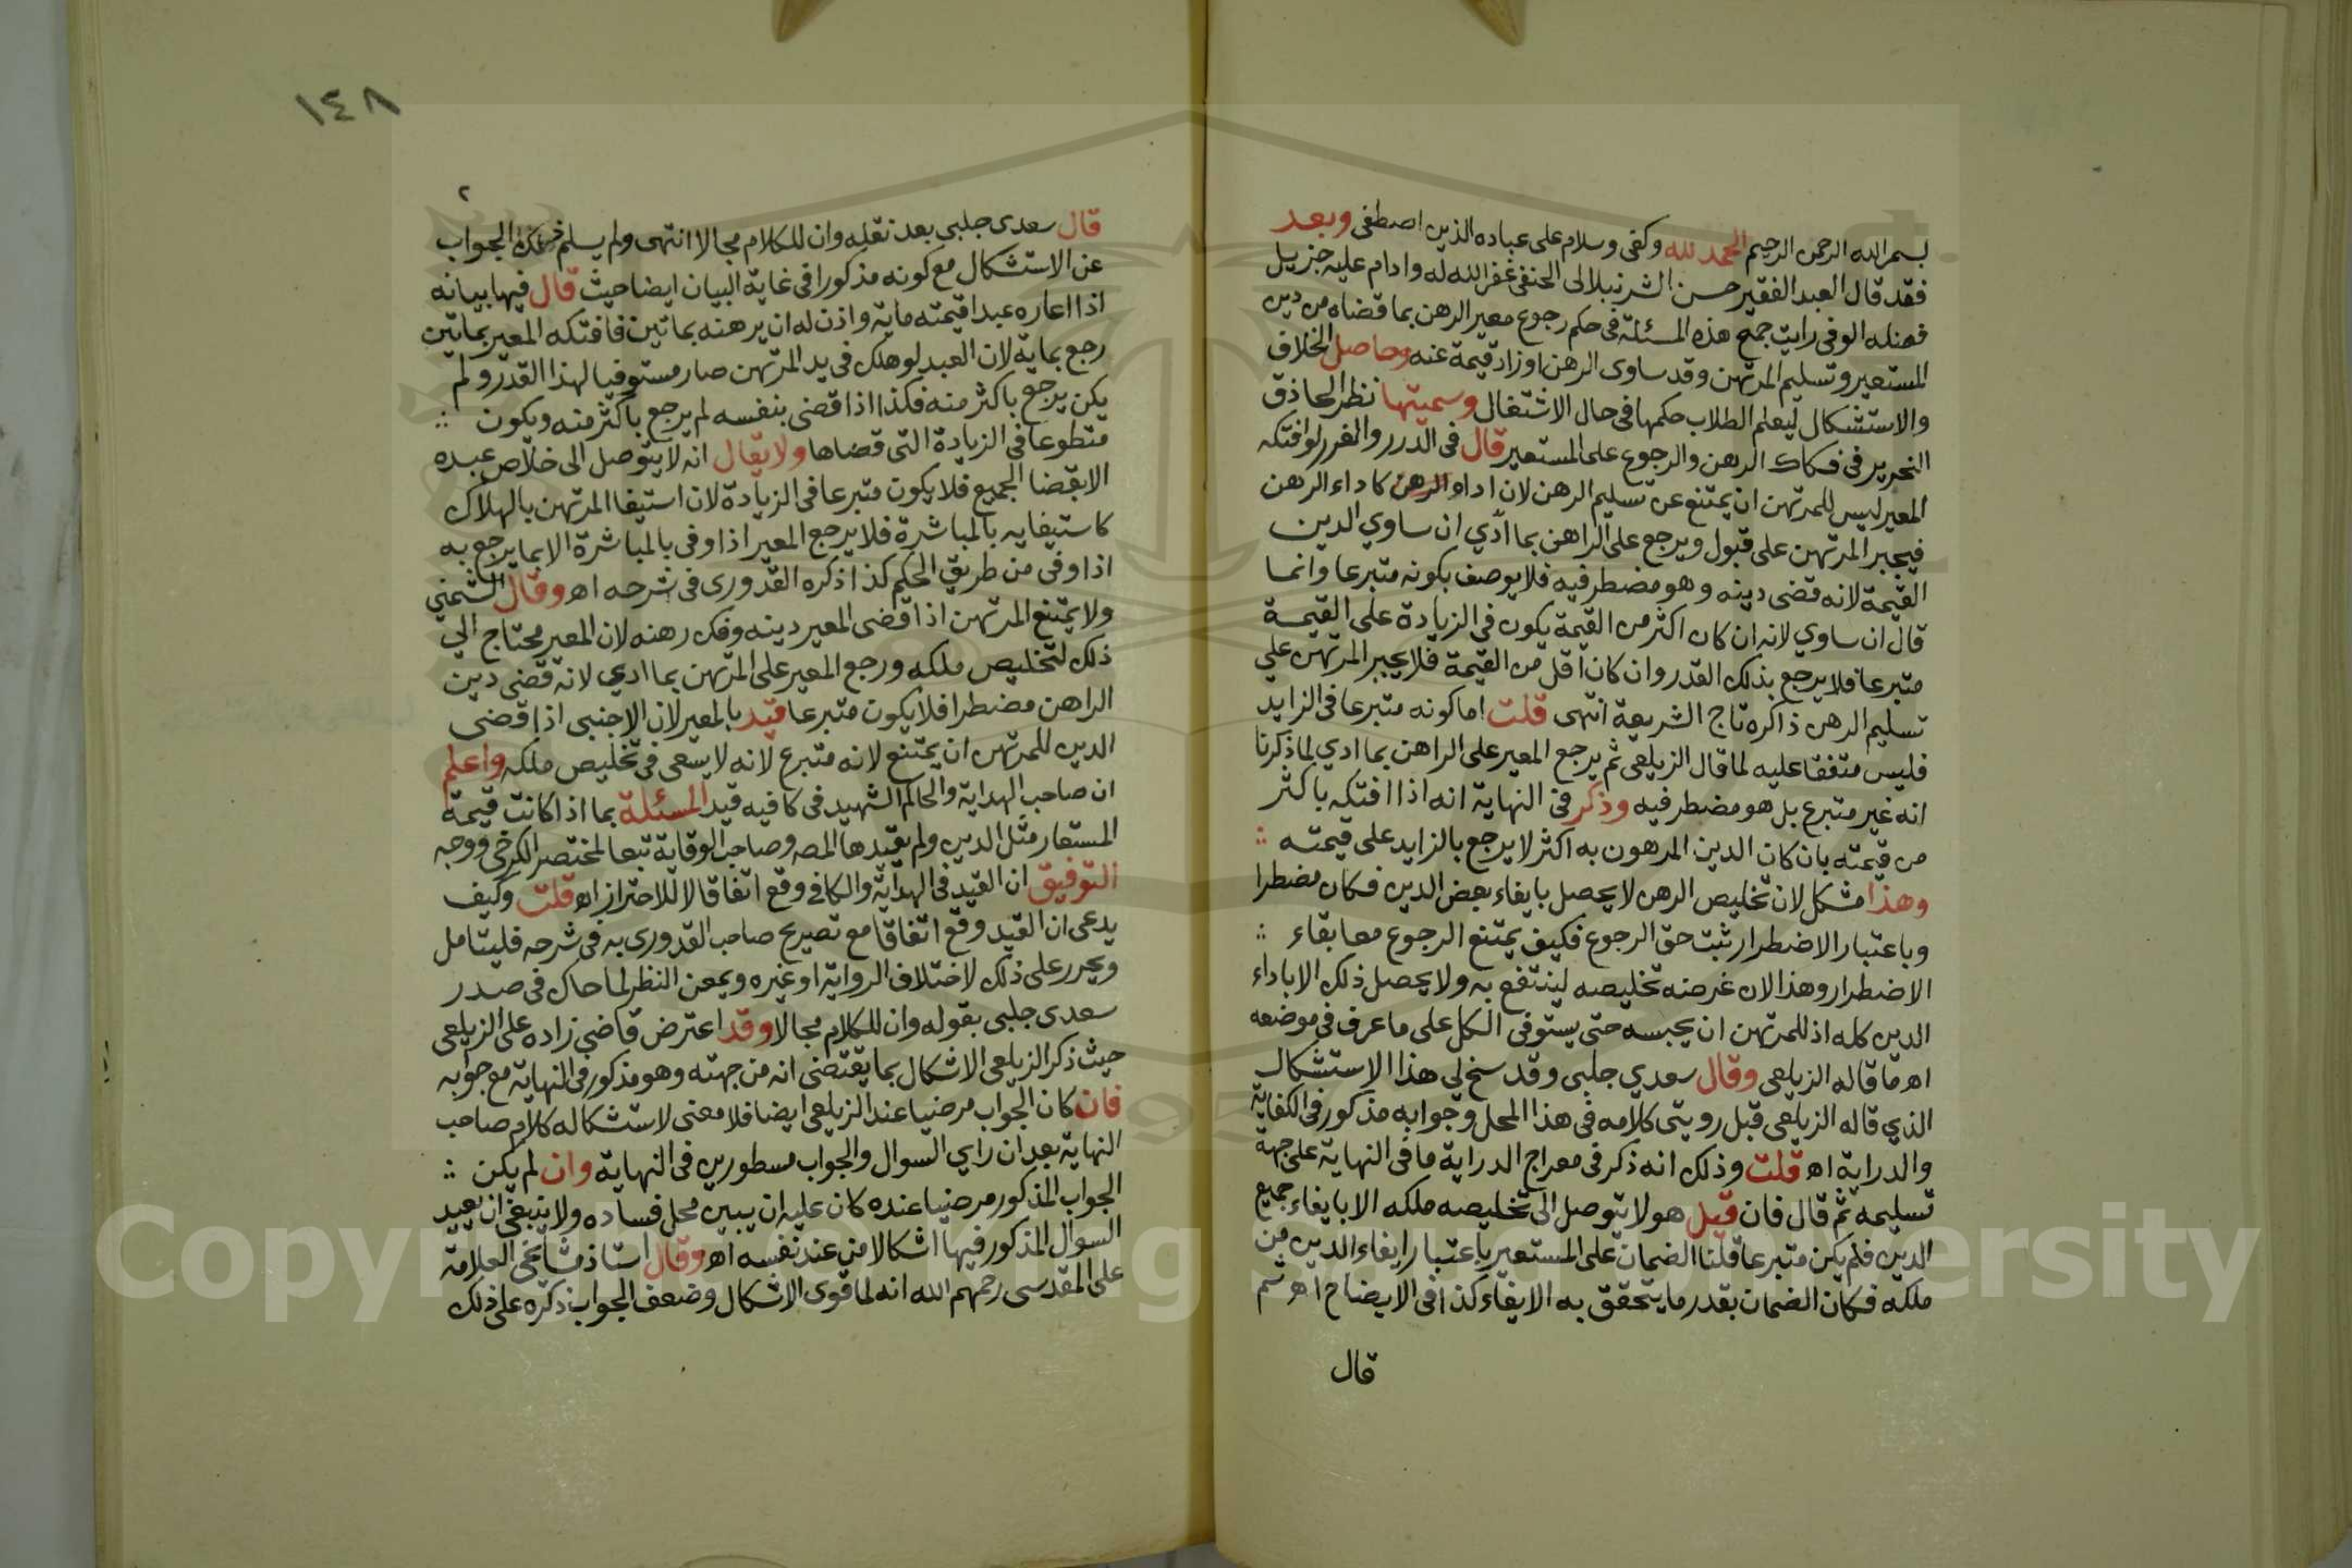 بسم الله الرحمن الرحيم الحمد لله وكفى وسلام على عباده الذين اصطفى وبعد
فقد قال العبد الفقير حسن الشرنبلالى الحنفى غفر الله له وادام عليه جزيل
فضله الوفى رايت جمع هذه المسئلة فى حكم رجوع معير الرهن بما قضاه من دين
المستعير وتسليم المرتهن وقد ساوى الرهن او زاد قيمة عنه وحاصل الخلاف
والاستشكال ليعلم الطلاب حكمها فى حال الاشتغال وسميتها نظر الحاذق
النحرير فى فكاك الرهن والرجوع على المستعير قال فى الدرر والغرر لو افتكه
المعير ليس للمرتهن ان يمتنع عن تسليم الرهن لان اداو الرهن كاداء الرهن
فيجبر المرتهن على قبول ويرجع على الراهن بما ادي ان ساوي الدين
القيمة لانه قضى دينه وهو مضطر فيه فلا يوصف بكونه متبرعا وانما
قال ان ساوي لانه ان كان اكثر من القيمة يكون في الزيادة على القيمة
متبرعا فلا يرجع بذلك القدر وان كان اقل من القيمة فلا يجبر المرتهن علي
تسليم الرهن ذاكره تاج الشريعة انتهى قلت اما كونه متبرعا فى الزايد
فليس متفقا عليه لما قال الزيلعى ثم يرجع المعير على الراهن بما ادي لما ذكرنا
انه غير متبرع بل هو مضطر فيه وذكر فى النهاية انه اذا افتكه باكثر
من قيمته بان كان الدين المرهون به اكثر لا يرجع بالزايد على قيمته
وهذا مشكل لان تخليص الرهن لا يحصل بايفاء بعض الدين فكان مضطرا
وباعتبار الاضطرار ثبت حق الرجوع فكيف يمتنع الرجوع مع ابقاء
الاضطرار وهذا لان غرضه تخليصه لينتفع به ولا يحصل ذلك الا باداء
الدين كله اذ للمرتهن ان يحبسه حتى يستوفى الكل على ما عرف فى موضعه
اه ما قاله الزيلعى وقال سعدي جلبى وقد سنح لي هذا الاستشكال
الذي قاله الزيلعى قبل رويتى كلامه فى هذا المحل وجوابه مذكور فى الكفاية
والدراية اه قلت وذلك انه ذكر فى معراج الدراية ما فى النهاية على جهة
تسليمه ثم قال فان قيل هو لا يتوصل الى تخليصه ملكه الا بايفاء جميع
الدين فلم يكن متبرعا قلنا الضمان على المستعير باعتبار ايفاء الدين من
ملكه فكان الضمان بقدر ما يتحقق به الايفاء كذا فى الايضاح اه ثم
قال
١٤٨
٢
قال سعدى جلبى بعد نقله وان للكلام مجالا انتهى ولم يسلم هذا الجواب
عن الاستشكال مع كونه مذكورا فى غاية البيان ايضا حيث قال فيها بيانه
اذا اعاره عبدا قيمته ماية واذن له ان يرهنه بماتين فافتكه المعير بماتين
رجع بماية لان العبد لو هلك فى يد المرتهن صار مستوفيا لهذا القدر ولم
يكن يرجع باكثر منه فكذا اذا قضى بنفسه لم يرجع باكثر منه ويكون
متطوعا فى الزيادة التى قضاها ولا يقال انه لا يتوصل الى خلاص عبده
الا بقضا الجميع فلا يكون متبرعا فى الزيادة لان استيفا المرتهن بالهلاك
كاستيفايه بالمباشرة فلا يرجع المعير اذا وفى بالمباشرة الا بما يرجع به
اذا وفى من طريق الحكم كذا ذكره القدورى فى شرحه اه وقال الشمني
ولا يمتنع المرتهن اذا قضى المعير دينه وفك رهنه لان المعير محتاج الي
ذلك لتخليص ملكه ورجع المعير على المرتهن بما ادي لانه قضى دين
الراهن مضطرا فلا يكون متبرعا قيد بالمعير لان الاجنبى اذا قضى
الدين للمرتهن ان يمتنع لانه متبرع لانه لا يسعى فى تخليص ملكه واعلم
ان صاحب الهداية والحاكم الشهيد فى كافيه قيد المسئلة بما اذا كانت قيمة
المستعار مثل الدين ولم يقيدها المصه وصاحب الوقاية تبعا لمختصر الكرخى ووجه
التوفيق ان القيد فى الهداية والكافى وقع اتفاقا لا للاحتراز اه قلت وكيف
يدعى ان القيد وقع اتفاقا مع تصريح صاحب القدورى به فى شرحه فليتامل
ويحرر على ذلك لاختلاف الرواية او غيره ويمعن النظر لما حاك فى صدر
سعدى جلبى بقوله وان للكلام مجالا وقد اعترض قاضي زاده على الزيلعى
حيث ذكر الزيلعى الاشكال بما يقتضى انه من جهته وهو مذكور فى النهاية مع جوابه
فان كان الجواب مرضيا عند الزيلعى ايضا فلا معنى لاستشكاله كلام صاحب
النهاية بعد ان راي السوال والجواب مسطورين فى النهاية وان لم يكن
الجواب المذكور مرضيا عنده كان عليه ان يبين محل فساده ولا ينبغى ان يعيد
السوال المذكور فيها اشكالا من عند نفسه اه وقال استاذ مشايخى العلامة
على المقدسى رحمهم الله انه لما قوى الاشكال وضعف الجواب ذكره على ذلك
Copyright © King Saud University